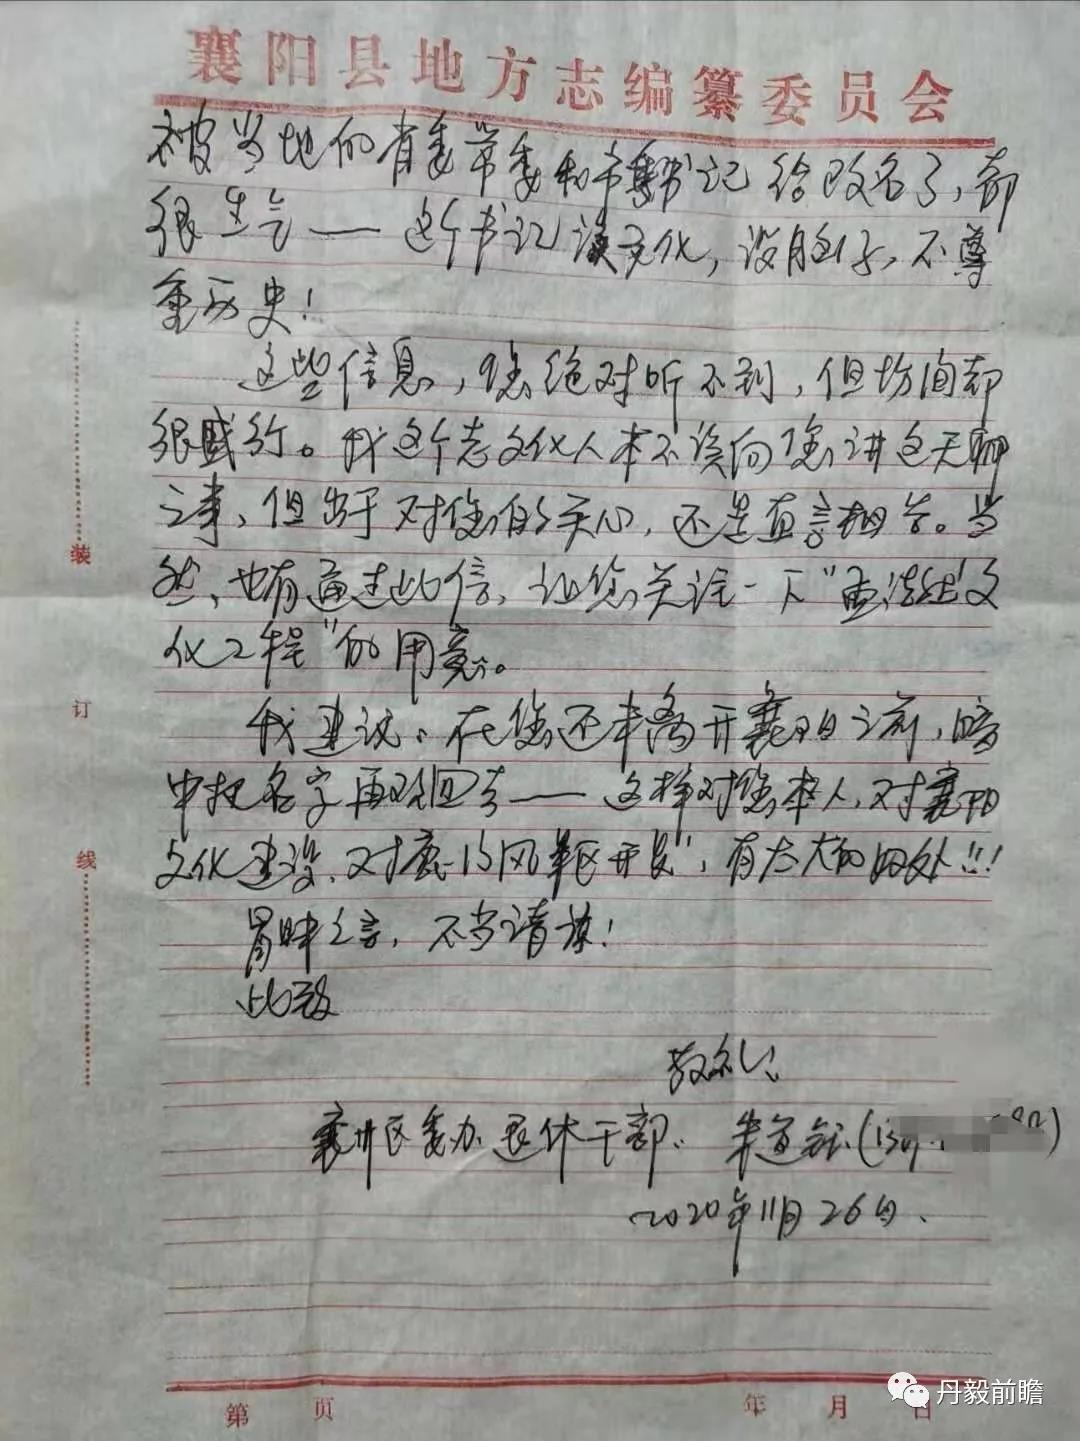 襄阳县地方志编纂委员会
被当地的省委常委和市委书记给改名了，都
很生气——这个书记没文化，没脑子，不尊
重历史！
这些信息，您绝对听不到，但坊间却
很盛行。我这个志文化人本不该向您讲这天聊
之事，但出于对您的关心，还是直言相告。当
然，也有通过此信，让您关注一下"孟浩然文
化工程"的用意。
我建议：在您还未离开襄阳之前，暗
中把名字再改回去——这样对您本人，对襄阳
文化建设，对鹿门风景区开发"，有太大的好处!!!
冒昧之言，不当请谅！
此致
敬礼！
襄州区委办退休干部：朱道
2020年11月26日.
装
订
线
第 页
年 月 日
丹毅前瞻